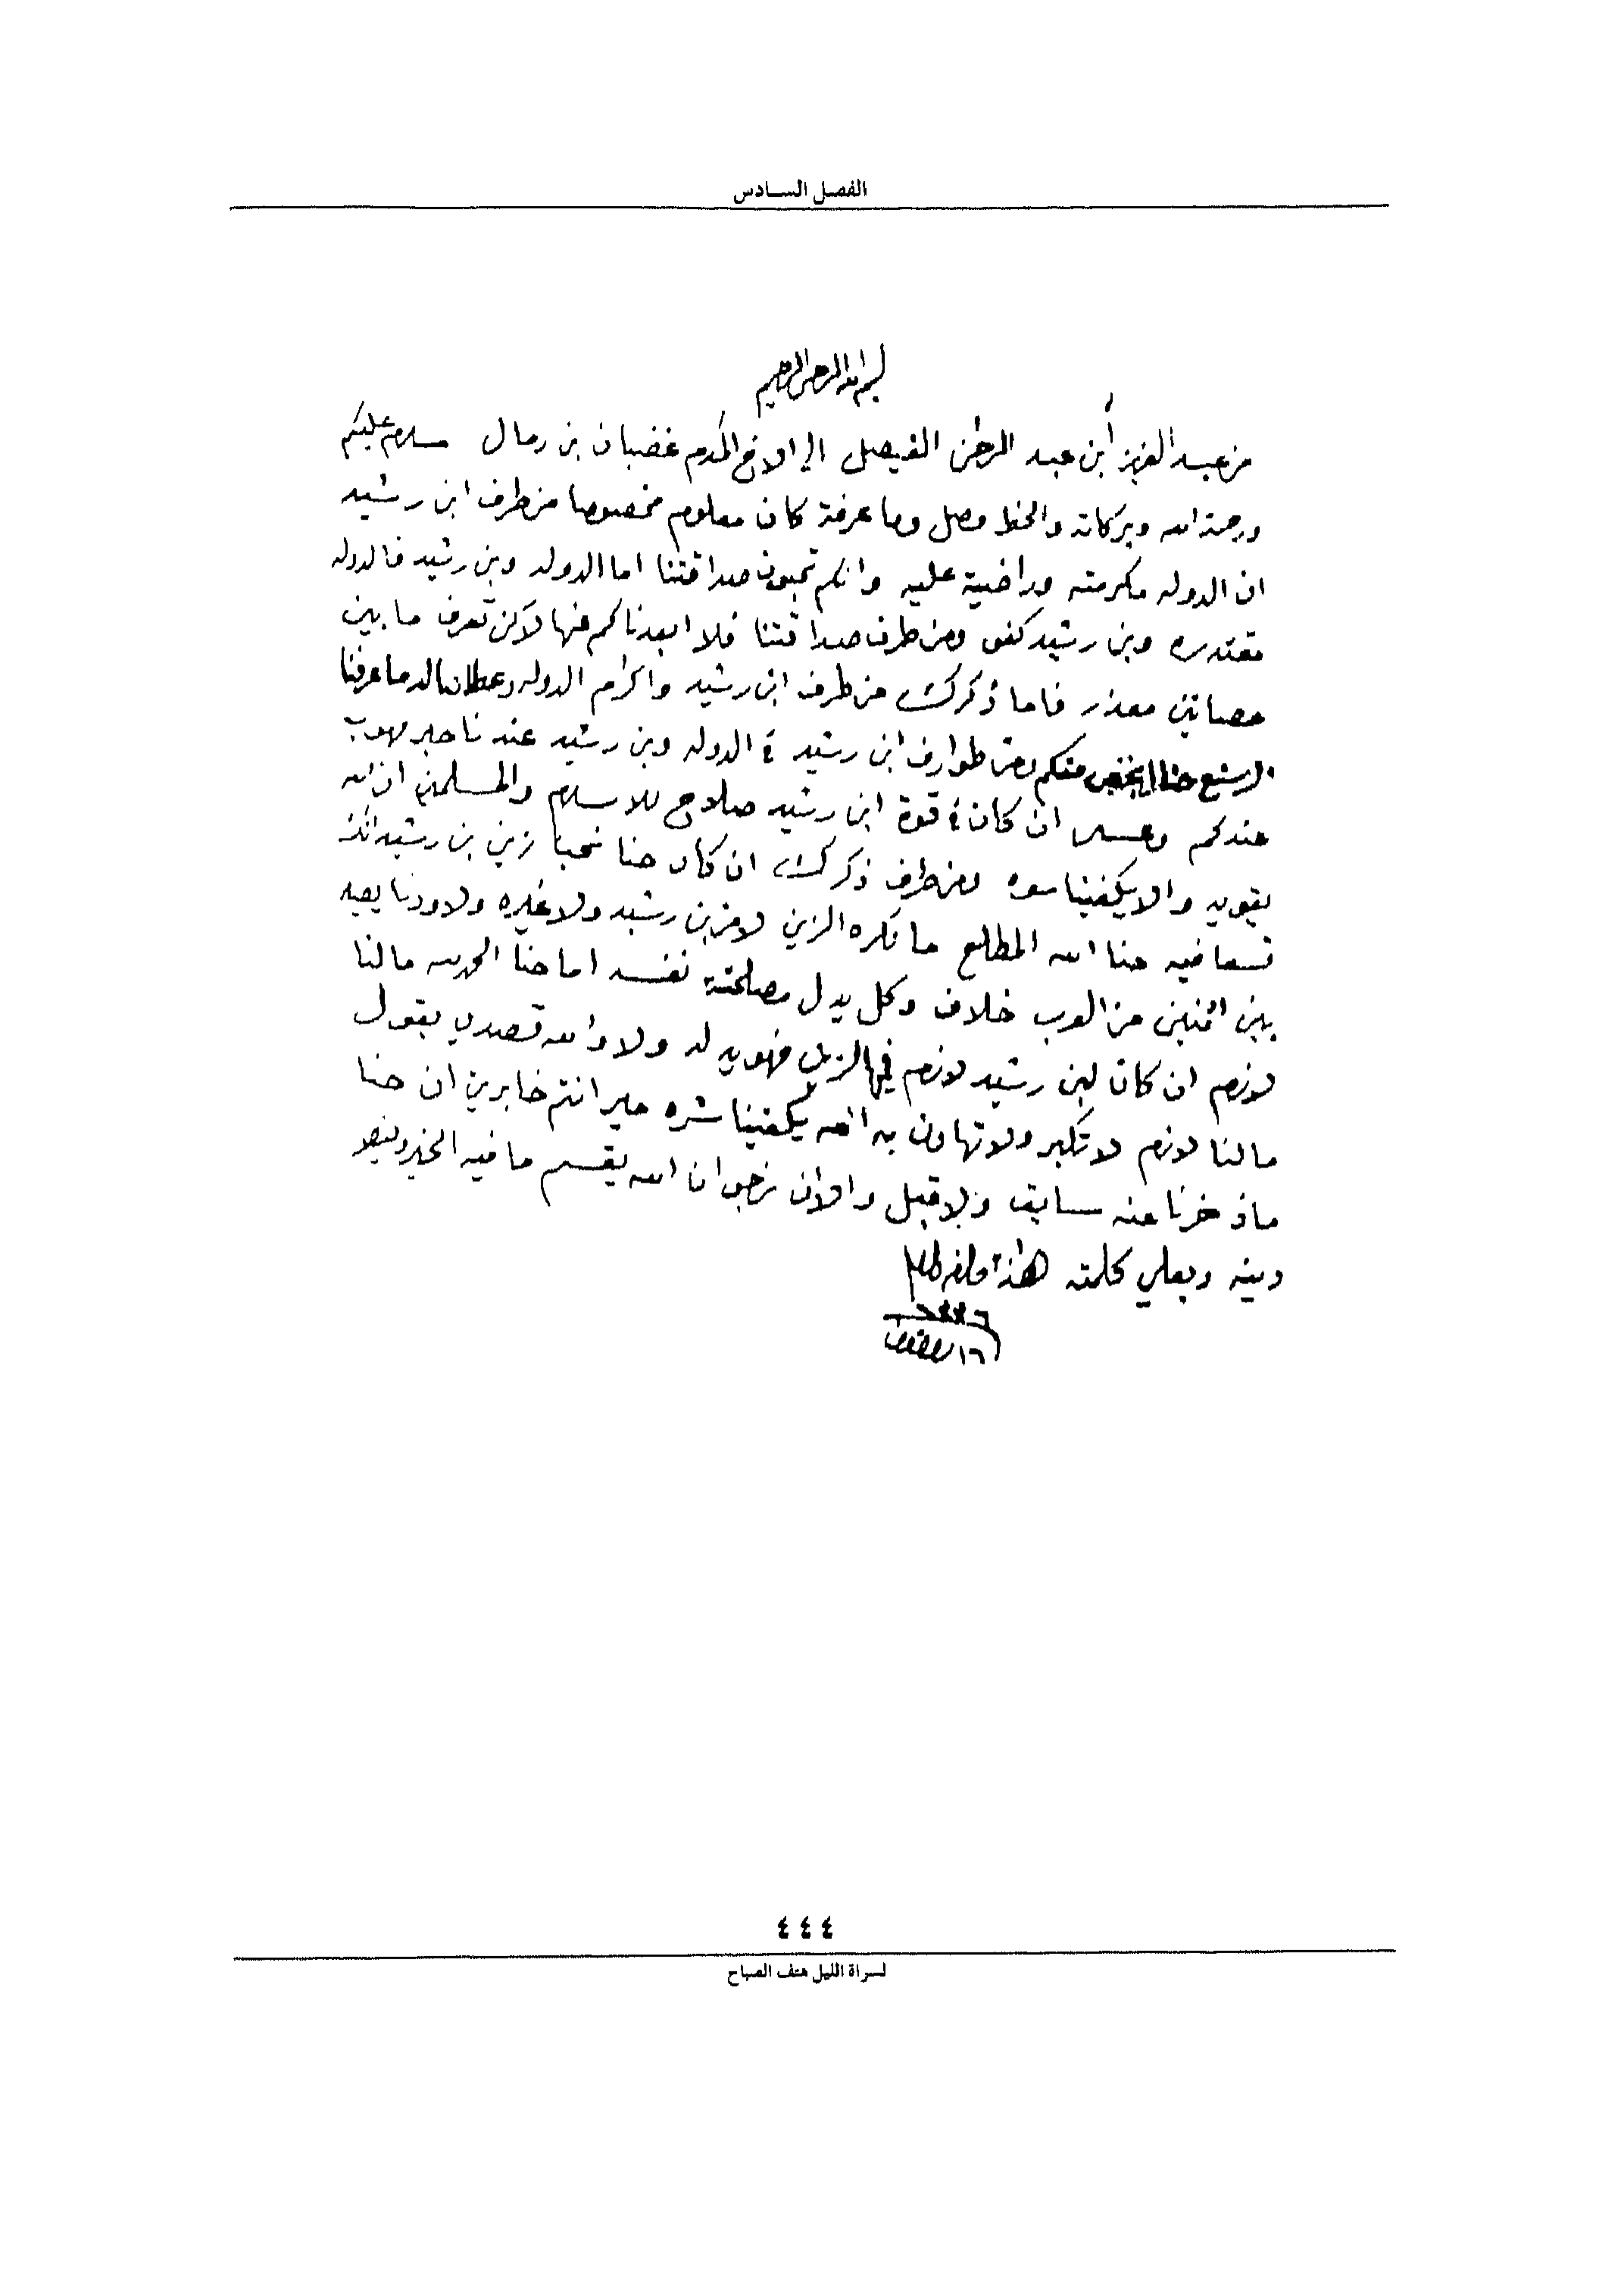 الفصل السادس
بسم الله الرحمن الرحيم
من عبد العزيز أبن عبد الرحمن الفيصل الى الاخ المكرم غضبان بن رمال سلام عليكم
ورحمة الله وبركاته والخط وصل وما عرفة كان معلوم مخصوصا من طرف ابن رشيد
ان الدوله مكرمته وراضية عليه وانكم تحبون صداقتنا اما الدوله وبن رشيد فالدوله
مقتدره وبن رشيد كفو ومن طرف صداقتنا فلا ابعدناكم عنها لاكن تعرف ما بين
حصاتين معذر فاما ذكرك من طرف ابن رشيد واكرام الدوله ما عرفنا
حنا منكم ومن طوارف ابن رشيد الدوله وبن رشيد عندنا
عندكم وعسى ان كان قوة ابن رشيد صلاح للاسلام والمسلمين ان الله
يقويه والا يكفينا سوه ومن طرف ذكرك ان كان حنا نحبا زين بن رشيد انك
تسعا فيه حنا الله المطلع ما نكره الزين لا من بن رشيد ولا غيره ولا ودنا يصير
بين اثنين من العرب خلاف وكل يدل مصلحة نفسه اما حنا الحمد لله مالنا
لازم ان كان لبن رشيد لازم فيها الزين فهو يه له ولا والله قصدي بقول
مالنا لازم لا تكبر ولا تهاون به الله يكفينا شره مير انتم خابرين ان حنا
ماذخرنا عنه سابق ولا قبل والان نرجو ان الله يقسم ما فيه الخير وينصر
دينه ويعلي كلمته هذا مالزم والسلام
١٦
٤٤٤
لسراة الليل هتف الصباح